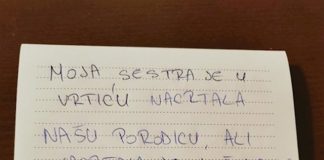 MOJA SESTRA JE U
VRTIĆU NACRTALA
NAŠU PORODICU, ALI